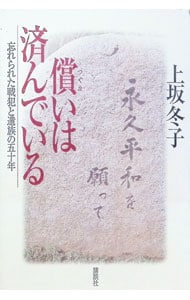 上坂冬子
償いは
つぐな
済んでいる
忘れられた戦犯と遺族の五十年
永久平和を
願って
講談社